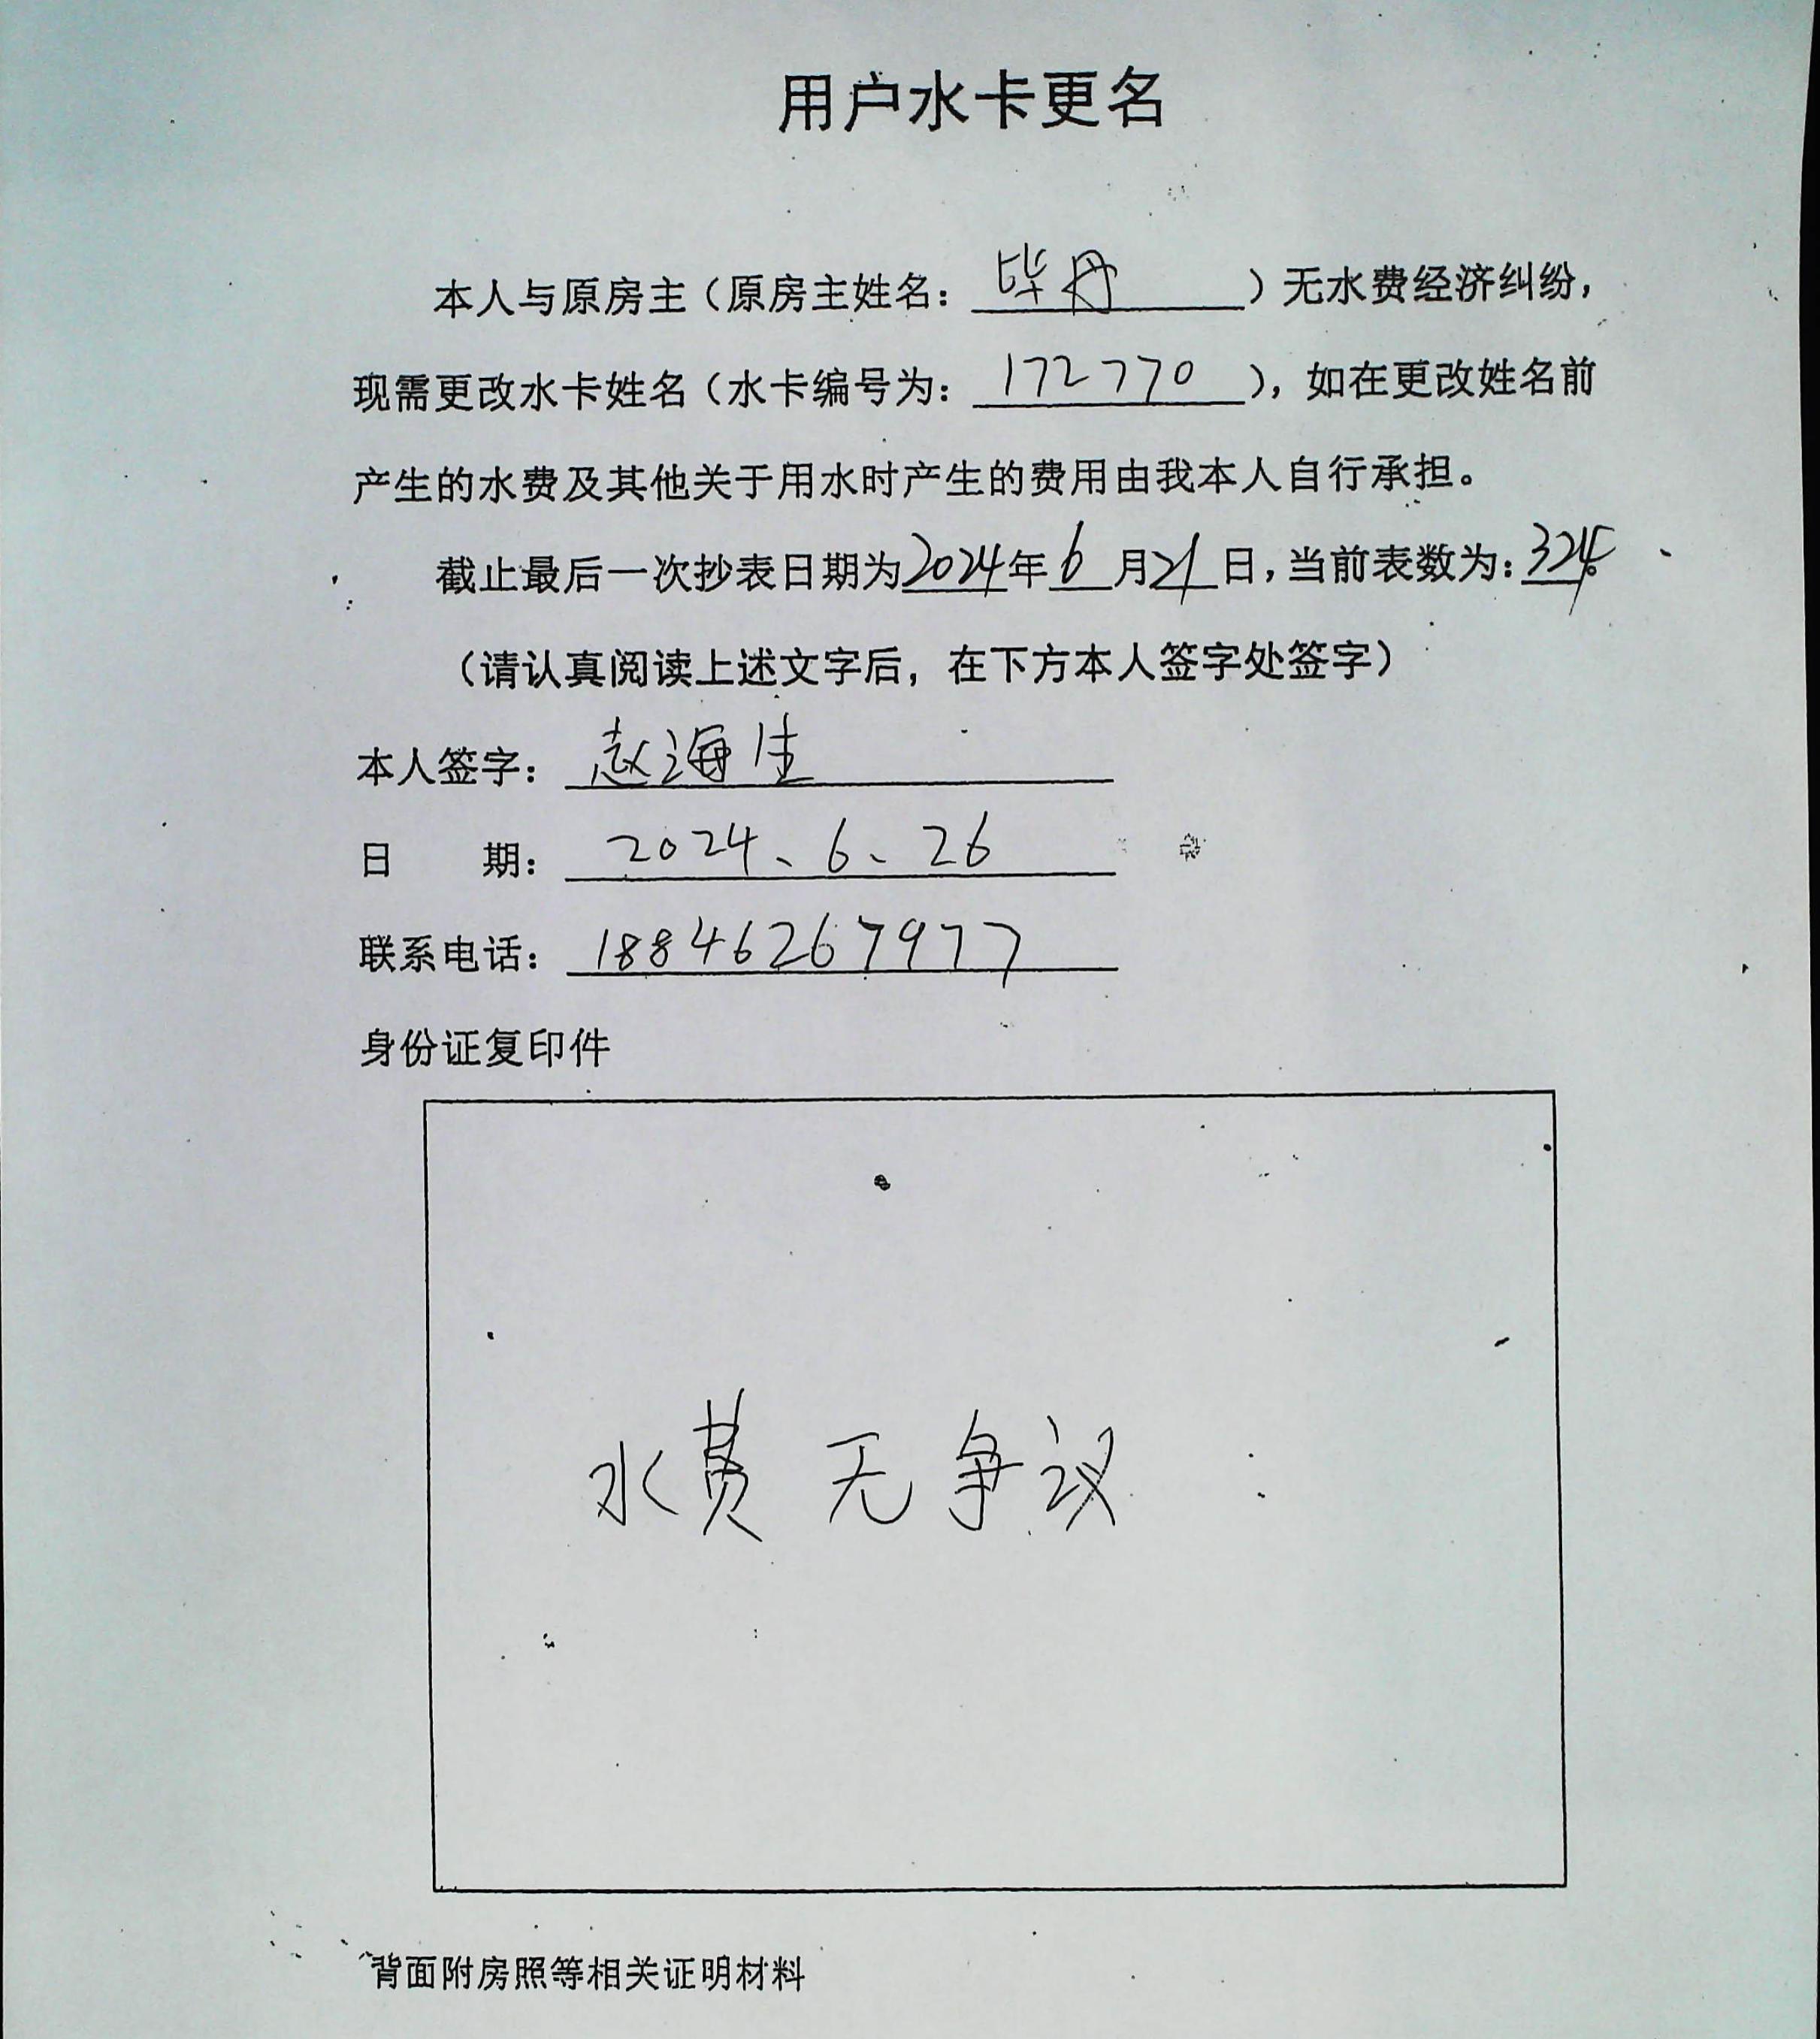 用户水卡更名
本人与原房主（原房主姓名：毕丹）无水费经济纠纷，
现需更改水卡姓名（水卡编号为：172770），如在更改姓名前
产生的水费及其他关于用水时产生的费用由我本人自行承担。
截止最后一次抄表日期为2024年6月21日，当前表数为：324。
（请认真阅读上述文字后，在下方本人签字处签字）
本人签字：赵海生
日 期：2024、6、26
联系电话：18846267977
身份证复印件
水费无争议
背面附房照等相关证明材料